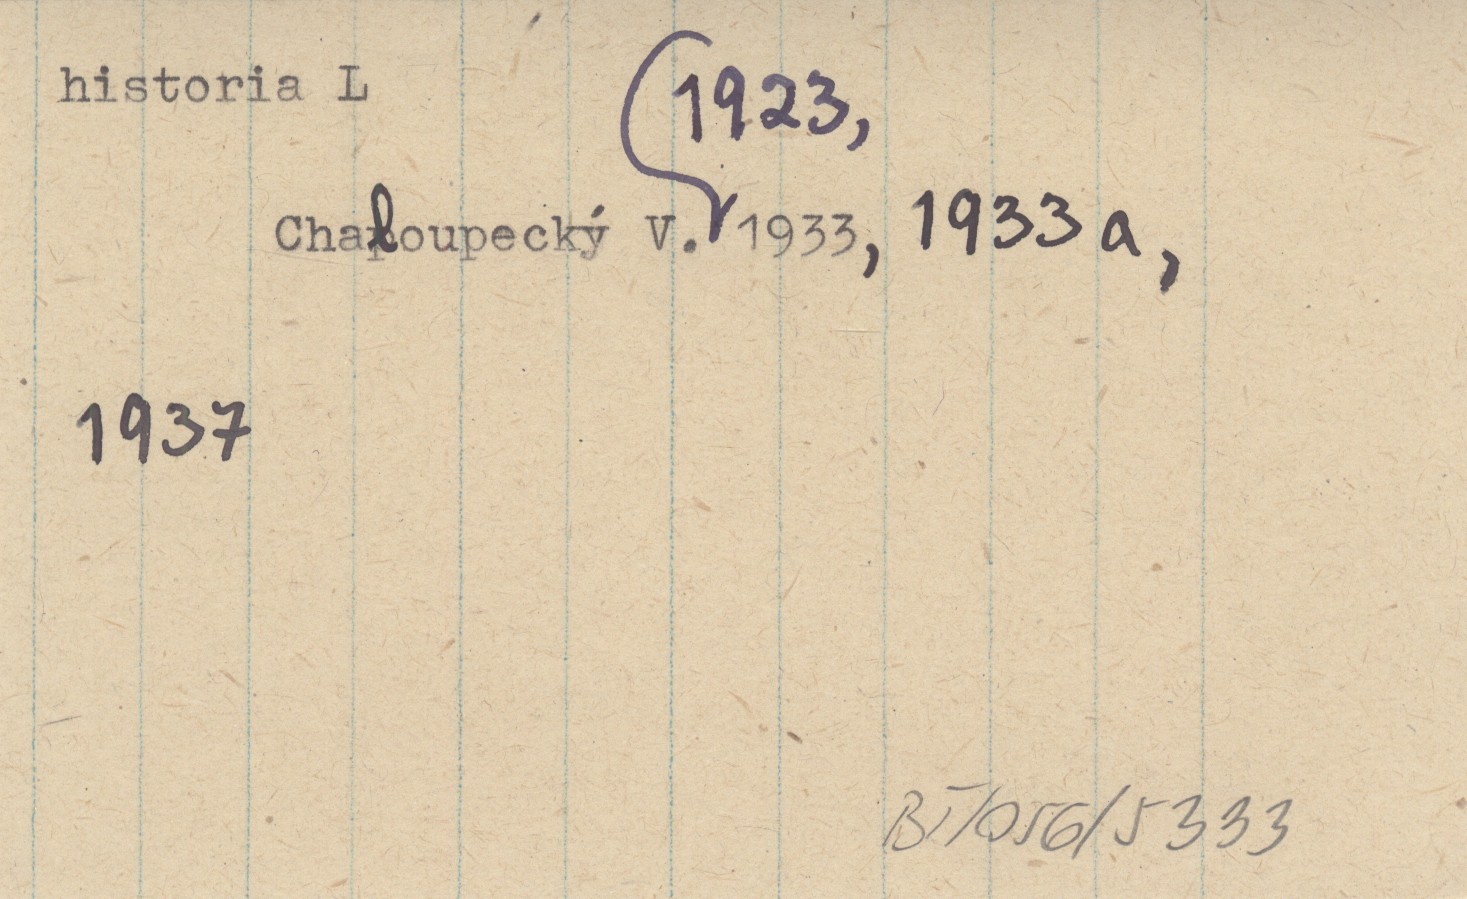 historia L
1923,
Chaloupecký V. 1933, 1933a,
1937
BI/056/5333